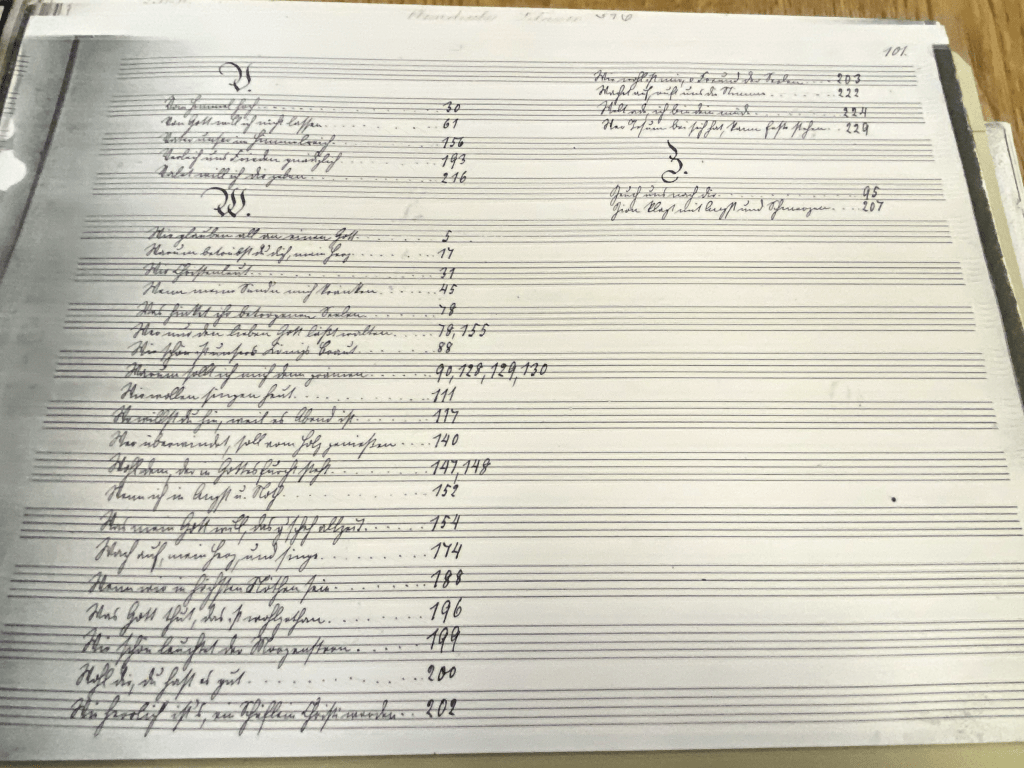 101.
V.
Vom Himmel hoch 30
Von Gott will ich nicht lassen 61
Vater unser im Himmelreich 156
Verleih uns Frieden gnädiglich 193
Valet will ich dir geben 216
W.
Wir glauben all an einen Gott 5
Warum betrübst du dich, mein Herz 17
Wir Christenleut 31
Wenn meine Sünden mich kränken 45
Was hinket ihr betrogenen Seelen 78
Wer nur den lieben Gott läßt walten 78, 155
Wie schön ist unsers Königs Braut 88
Warum sollt ich mich denn grämen 90, 128, 129, 130
Wir wollen singen heut 111
Wo willst du hin, weil es Abend ist 117
Wer überwindet, soll vom Holz genießen 140
Wohl dem, der in Gottesfurcht steht 147, 148
Wenn ich in Angst u. Noth 152
Was mein Gott will, das g'scheh allzeit 154
Wach auf, mein Herz, und singe 174
Wenn wir in höchsten Nöthen sein 188
Was Gott thut, das ist wohlgethan 196
Wie schön leuchtet der Morgenstern 199
Wohl dir, du hast es gut 200
Wie herrlich ist's, ein Schäflein Christi werden 202
Wie wohl ist mir, o Freund der Seelen 203
Wachet auf, ruft uns die Stimme 222
Welt ade, ich bin dein müde 224
Wer Jesum bei sich hat, kann feste stehen 229
Z.
Zeuch uns nach dir 95
Zion klagt mit Angst und Schmerzen 207